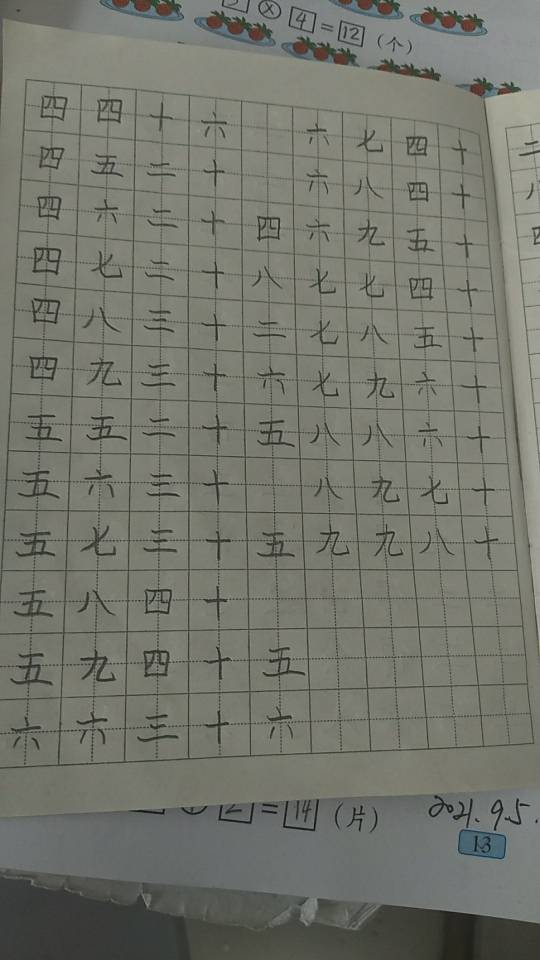 × 4 = 12 (个)
四四十六 六七四十
四五二十 六八四十
四六二十四 六九五十
四七二十八 七七四十
四八三十二 七八五十
四九三十六 七九六十
五五二十五 八八六十
五六三十 八九七十
五七三十五 九九八十
五八四十
五九四十五
六六三十六
= 14 (片)
2021.9.5.
13